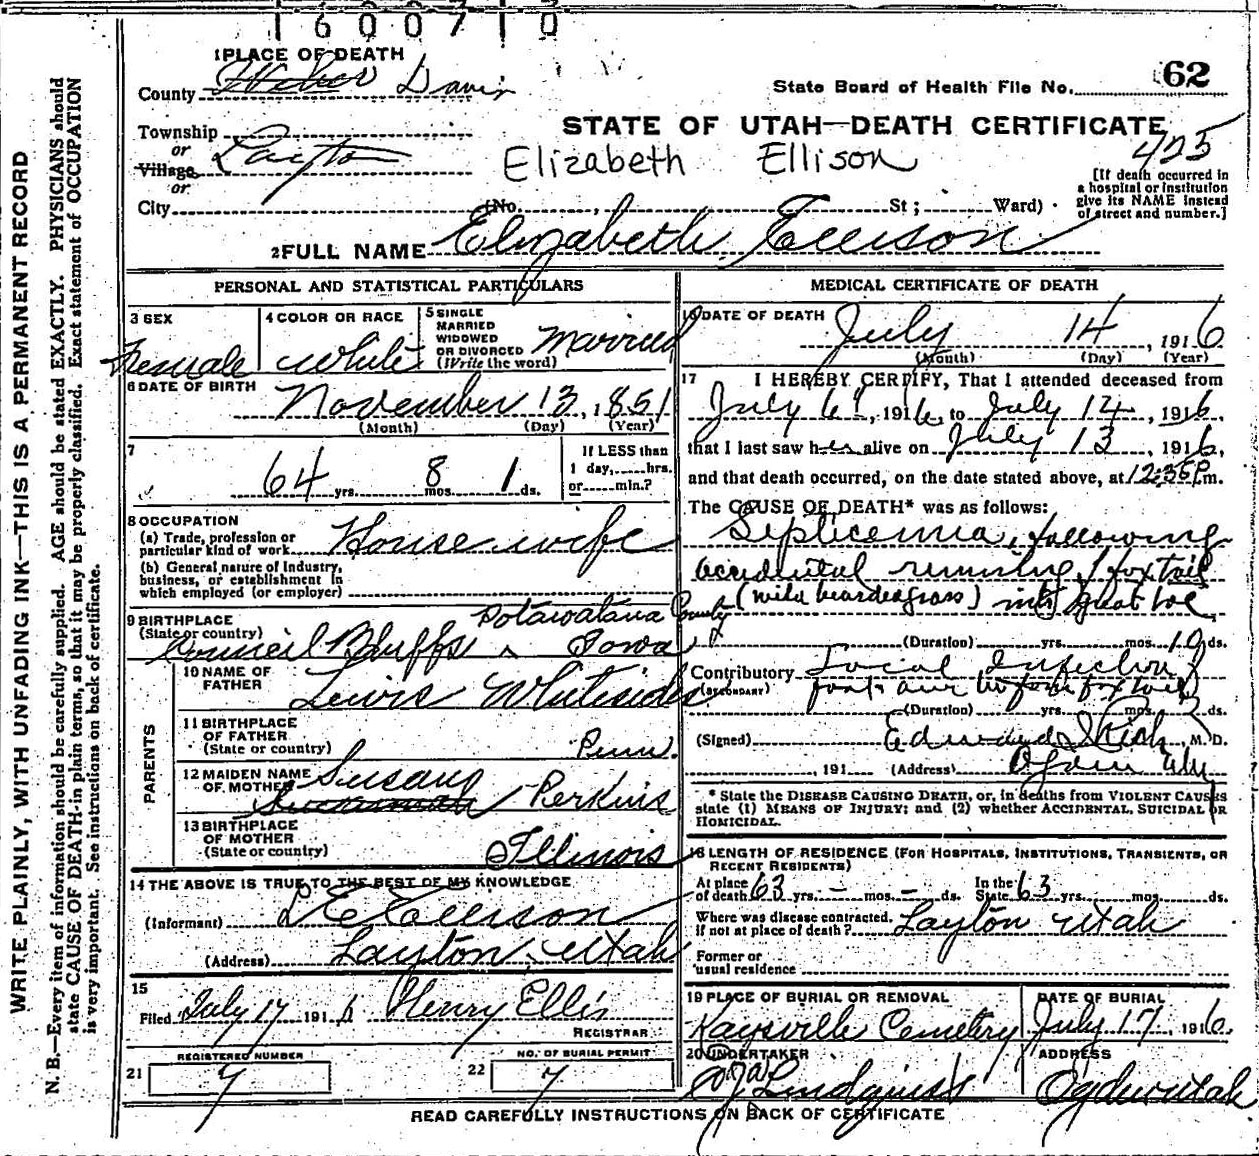 1600710
1 PLACE OF DEATH
County Weber Davis
State Board of Health File No. 62
Township
or
Village Layton
or
City
STATE OF UTAH—DEATH CERTIFICATE
425
Elizabeth Ellison
[If death occurred in
a hospital or institution
give its NAME instead
of street and number.]
(No. , St ; Ward)
2 FULL NAME Elizabeth Ellison
PERSONAL AND STATISTICAL PARTICULARS
3 SEX
Female
4 COLOR OR RACE
White
5 SINGLE
MARRIED
WIDOWED
OR DIVORCED
(Write the word)
Married
6 DATE OF BIRTH
November 13, 1851
(Month) (Day) (Year)
7
64 yrs. 8 mos. 1 ds.
If LESS than
1 day, hrs.
or min.?
8 OCCUPATION
(a) Trade, profession or
particular kind of work Housewife
(b) General nature of Industry,
business, or establishment in
which employed (or employer)
9 BIRTHPLACE
(State or country)
Potawatana County
Council Bluffs ^ Iowa
PARENTS
10 NAME OF
FATHER
Lewis Whitesides
11 BIRTHPLACE
OF FATHER
(State or country)
Penn.
12 MAIDEN NAME
OF MOTHER
Susann Perkins
13 BIRTHPLACE
OF MOTHER
(State or country)
Illinois
14 THE ABOVE IS TRUE TO THE BEST OF MY KNOWLEDGE
(Informant) L E Ellison
(Address) Layton, Utah
15
Filed July 17 1916 Henry Ellis
REGISTRAR
REGISTERED NUMBER
21 7
NO. OF BURIAL PERMIT
22 7
MEDICAL CERTIFICATE OF DEATH
16 DATE OF DEATH
July 14, 1916
(Month) (Day) (Year)
17 I HEREBY CERTIFY, That I attended deceased from
July 6", 1916, to July 14, 1916,
that I last saw her alive on July 13, 1916,
and that death occurred, on the date stated above, at 12:35 P.m.
The CAUSE OF DEATH* was as follows:
Septicemia, following
accidental running of foxtail
(wild beardedgrass) into great toe
(Duration) yrs. mos. 10 ds.
Contributory Local Infection of
(SECONDARY) foot
(Duration) yrs. mos. ds.
(Signed) Edward I Rich, M. D.
, 191 (Address) Ogden Utah
* State the DISEASE CAUSING DEATH, or, in deaths from VIOLENT CAUSES
state (1) MEANS OF INJURY; and (2) whether ACCIDENTAL, SUICIDAL OR
HOMICIDAL.
18 LENGTH OF RESIDENCE (FOR HOSPITALS, INSTITUTIONS, TRANSIENTS, OR
RECENT RESIDENTS)
At place
of death 63 yrs. - mos. - ds.
In the
State 63 yrs. mos. ds.
Where was disease contracted,
if not at place of death? Layton Utah
Former or
usual residence
19 PLACE OF BURIAL OR REMOVAL
Kaysville Cemetery
DATE OF BURIAL
July 17, 1916.
20 UNDERTAKER
Lindquist
ADDRESS
Ogden Utah
READ CAREFULLY INSTRUCTIONS ON BACK OF CERTIFICATE
WRITE PLAINLY, WITH UNFADING INK—THIS IS A PERMANENT RECORD
N. B.—Every item of information should be carefully supplied. AGE should be stated EXACTLY. PHYSICIANS should
state CAUSE OF DEATH in plain terms, so that it may be properly classified. Exact statement of OCCUPATION
is very important. See instructions on back of certificate.